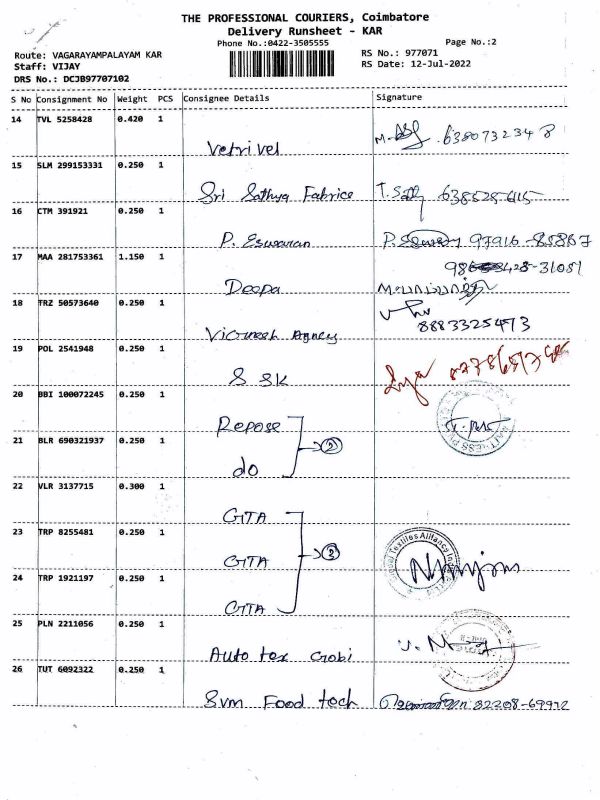 THE PROFESSIONAL COURIERS, Coimbatore
Delivery Runsheet - KAR
Phone No.:0422-3505555
Page No.:2
Route: VAGARAYAMPALAYAM KAR
RS No.: 977071
Staff: VIJAY
RS Date: 12-Jul-2022
DRS No.: DCJB97707102
S No Consignment No Weight PCS Consignee Details Signature
14 TVL 5258428 0.420 1
Vetrivel 638073234 8
15 SLM 299153331 0.250 1
Sri Sathya Fabrics
16 CTM 391921 0.250 1
P. Eswaran P. 97916 - 85867
17 MAA 281753361 1.150 1
Deepa
18 TRZ 50573640 0.250 1
8883325473
19 POL 2541948 0.250 1
S SK
20 BBI 100072245 0.250 1
Repose
21 BLR 690321937 0.250 1
do 2
22 VLR 3137715 0.300 1
GTA
23 TRP 8255481 0.250 1
GTA 3
24 TRP 1921197 0.250 1
GTA
25 PLN 2211056 0.250 1
Auto tex Gobi
26 TUT 6092322 0.250 1
Svm Food tech